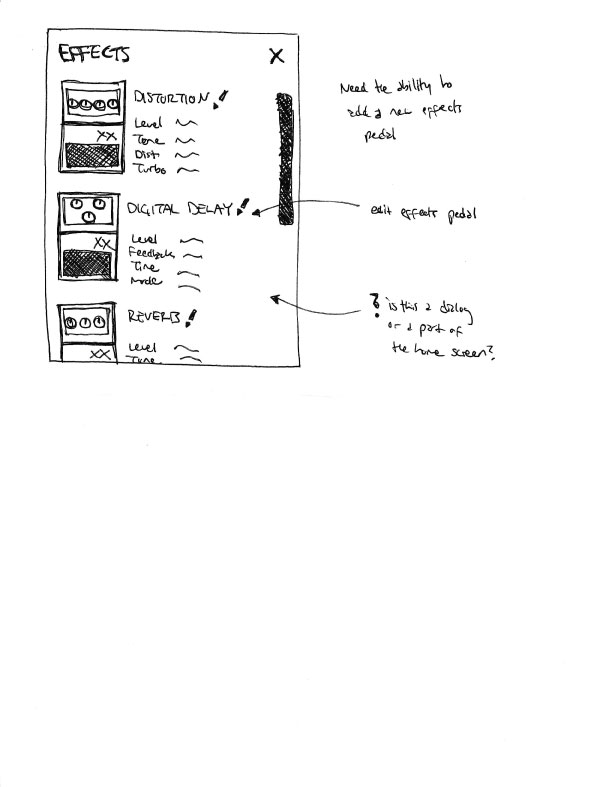 EFFECTS X
DISTORTION
Level
Tone
Dist
Turbo
XX
DIGITAL DELAY
Level
Feedback
Time
Mode
XX
REVERB
Level
Tone
XX
Need the ability to
add a new effects
pedal
edit effects pedal
? is this a dialog
or a part of
the home screen?